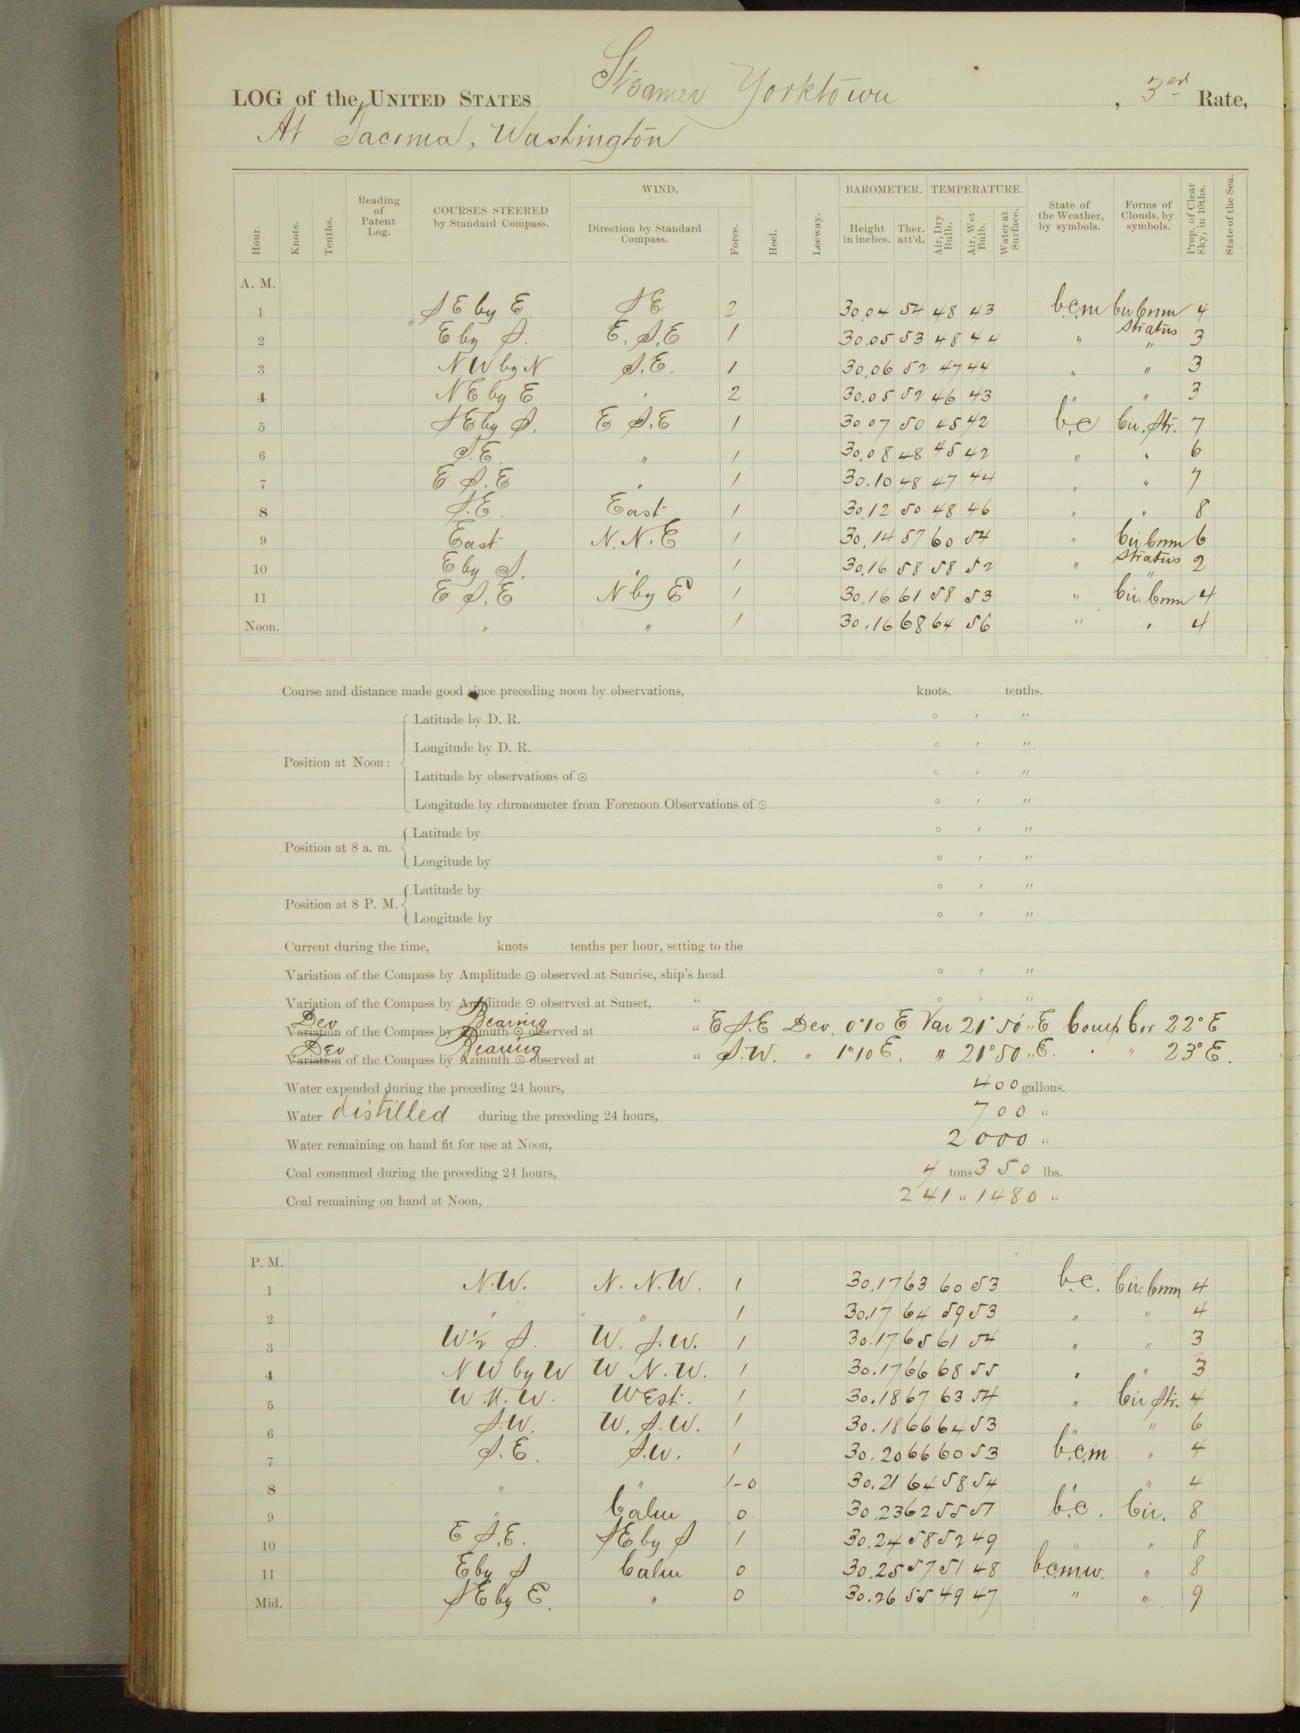 LOG of the UNITED STATES Steamer Yorktown, 3rd Rate,
At Tacoma, Washington
Hour. Knots. Tenths. Reading of Patent Log. COURSES STEERED by Standard Compass. WIND. Direction by Standard Compass. Force. Heel. Leeway. BAROMETER. Height in inches. Ther. att'd. TEMPERATURE. Air, Dry Bulb. Air, Wet Bulb. Water at Surface. State of the Weather, by symbols. Forms of Clouds, by symbols. Prop. of Clear Sky, in 10ths. State of the Sea.
A. M.
1 SE by E SE 2 30.04 54 48 43 b.c.m Cir Cum 4
2 E by S. E. S.E 1 30.05 53 48 44 " stratus " 3
3 NW by N S.E. 1 30.06 52 47 44 " " 3
4 NE by E " 2 30.05 52 46 43 " " 3
5 SE by S. E S.E 1 30.07 50 45 42 b.c Cir. Str. 7
6 S.E. " 1 30.08 48 45 42 " " 6
7 E S.E " 1 30.10 48 47 44 " " 7
8 S.E. East 1 30.12 50 48 46 " " 8
9 East N.N.E 1 30.14 57 60 54 " Cir Cum 6
10 E by S. " 1 30.16 58 58 52 " stratus " 2
11 E S.E N by E 1 30.16 61 58 53 " Cir. Cum 4
Noon. " " 1 30.16 68 64 56 " " 4
Course and distance made good since preceding noon by observations, knots. tenths.
Position at Noon: Latitude by D. R. ° ' "
Longitude by D. R. ° ' "
Latitude by observations of ☉ ° ' "
Longitude by chronometer from Forenoon Observations of ☉ ° ' "
Position at 8 a. m. Latitude by ° ' "
Longitude by ° ' "
Position at 8 P. M. Latitude by ° ' "
Longitude by ° ' "
Current during the time, knots tenths per hour, setting to the
Variation of the Compass by Amplitude ☉ observed at Sunrise, ship's head ° ' "
Variation of the Compass by Amplitude ☉ observed at Sunset, " ° ' "
Dev Bearing
Variation of the Compass by Azimuth ☉ observed at " E S.E Dev. 0°10 E Var 21° 50' " E Comp Cor 22° E
Dev Bearing
Variation of the Compass by Azimuth ☉ observed at " S.W. " 1°10 E. " 21° 50 " E. " " 23° E.
Water expended during the preceding 24 hours, 400 gallons.
Water distilled during the preceding 24 hours, 700 "
Water remaining on hand fit for use at Noon, 2000 "
Coal consumed during the preceding 24 hours, 4 tons 350 lbs.
Coal remaining on hand at Noon, 241 " 1480 "
P. M.
1 N.W. N. N.W. 1 30.17 63 60 53 b.c. Cir. Cum 4
2 " " 1 30.17 64 59 53 " " 4
3 W ½ S. W. S.W. 1 30.17 65 61 54 " " 3
4 NW by W W N.W. 1 30.17 66 68 55 " " 3
5 W. N. W. West. 1 30.18 67 63 54 " Cir Str. 4
6 S.W. W. S.W. 1 30.18 66 64 53 " " 6
7 S.E. S.W. 1 30.20 66 60 53 b.c.m " 4
8 " " 1-0 30.21 64 58 54 " " 4
9 " Calm 0 30.23 62 55 51 b.c. Cir. 8
10 E S.E. SE by S 1 30.24 58 52 49 " " 8
11 E by S Calm 0 30.25 57 51 48 b.c.m.w. " 8
Mid. SE by E. " 0 30.26 55 49 47 " " 9